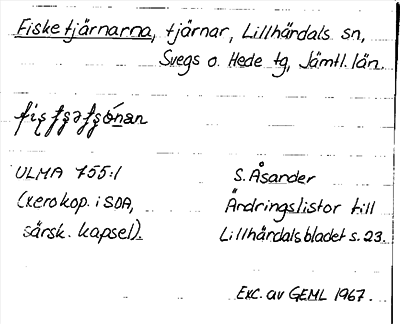 Fisketjärnarna, tjärnar, Lillhärdals sn,
Svegs o. Hede tg, Jämtl. län.
ULMA 755:1
(xerokop. i SDA,
särsk. kapsel).
S. Åsander
Ändringslistor till
Lillhärdalsbladet s. 23.
Exc. av GEML 1967.